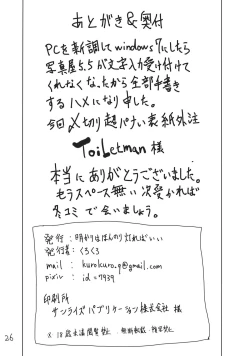 あとがき&奥付
PCを新調してwindows7にしたら
写真屋5.5が文字入力受け付けて
くれなくなったから全部手書き
するハメになり申した。
今回〆切り超パない表紙外注
ToiLetman 様
本当にありがとうございました。
もうスペース無い次受かれば
冬コミで会いましょう。
発行:明かりはほんのり灯ればいい
発行者:くろくろ
mail : kurokuro.q@gmail.com
pixiv : id=7439
印刷所
サンライズパブリケーション株式会社 様
※18歳未満閲覧禁止 無断転載・複写禁止
26